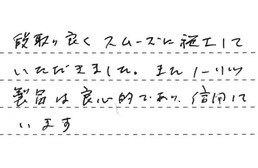 段取り良くスムーズに施工して
いただきました。またノーリツ
製品は良心的であり信用して
います